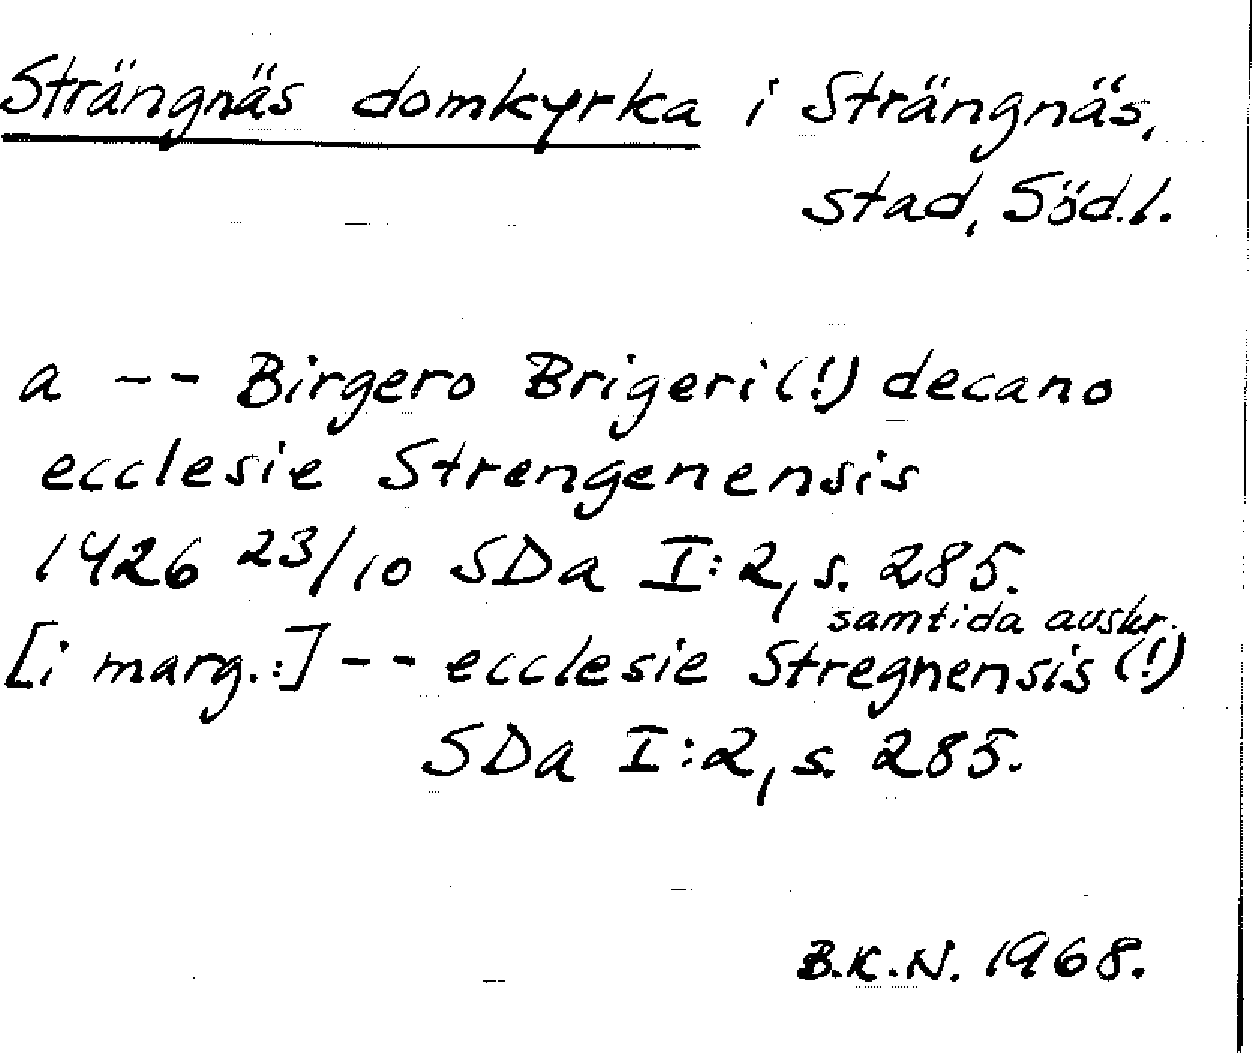 Strängnäs domkyrka i Strängnäs,
stad, Söd.l.
a -- Birgero Brigeri(!) decano
ecclesie Strengenensis
1426 23/10 SDa I:2, s. 285.
samtida avskr.
[i marg.:] -- ecclesie Stregnensis (!)
SDa I:2, s. 285.
B.K.N. 1968.